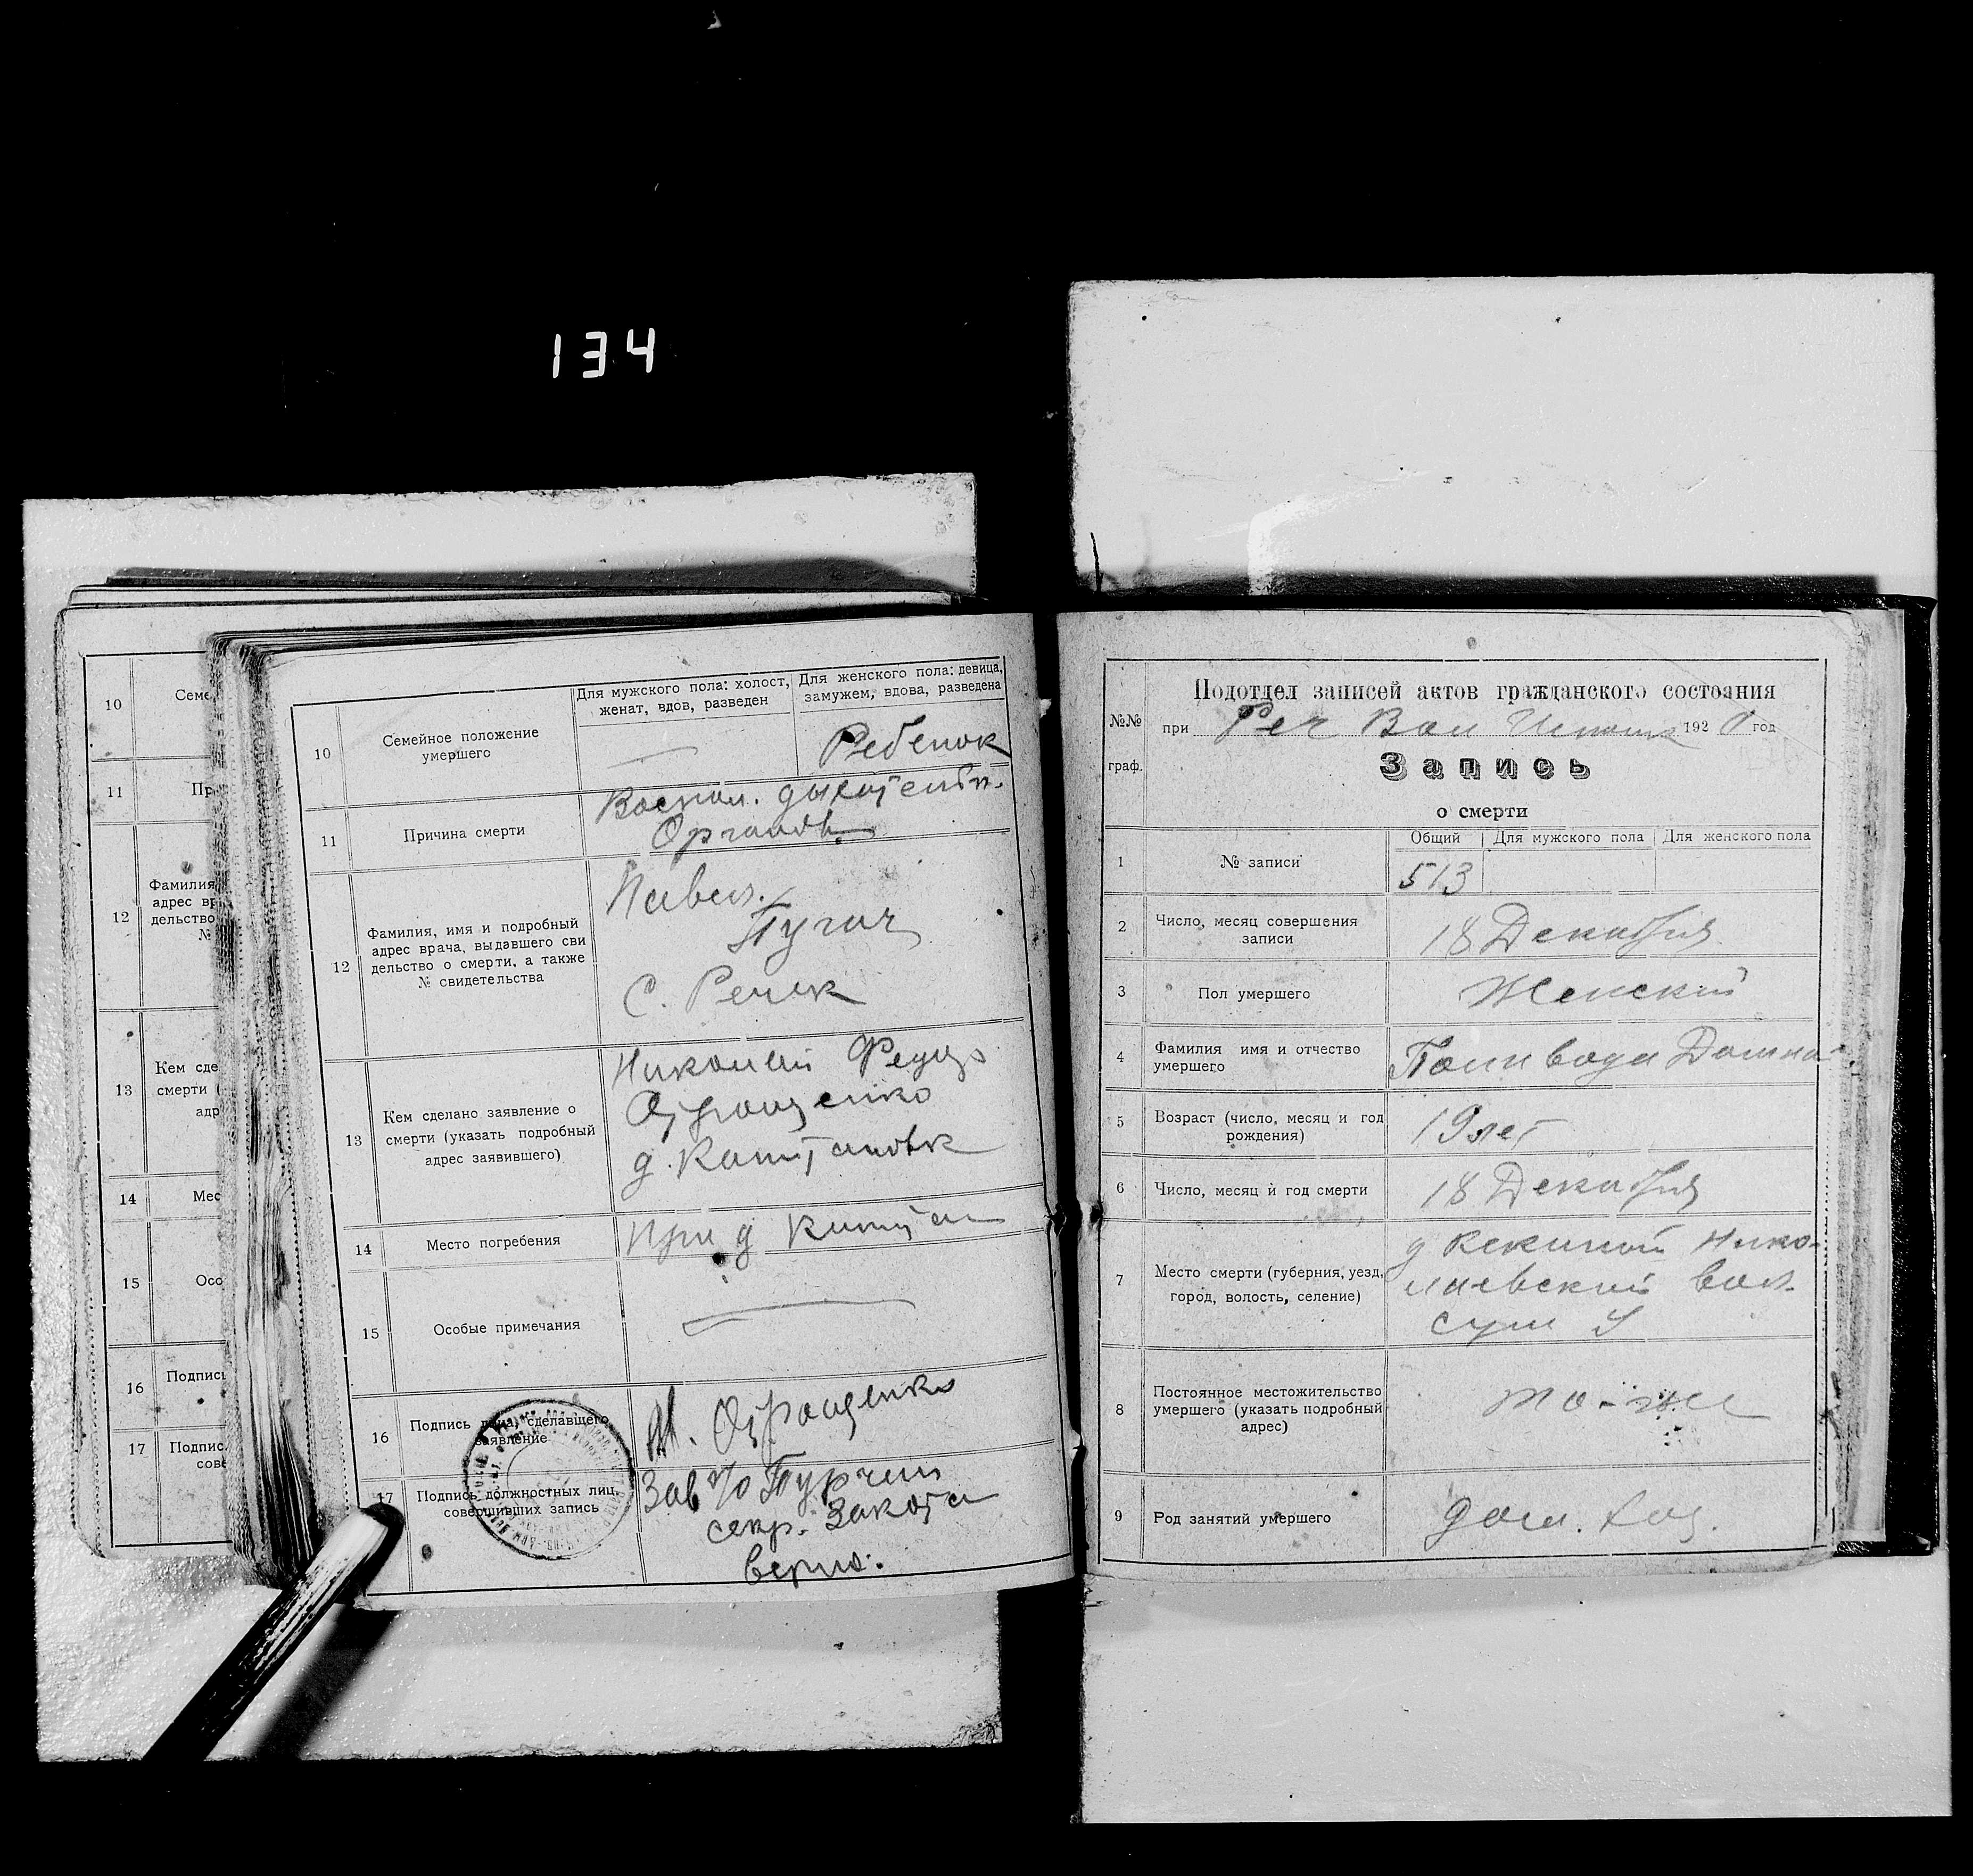 134
10
Семе
11
Пр
12
Фамилия
адрес вр
дельство
№
13
Кем сде
смерти (
адр
14
Мес
15
Осо
16
Подпись
17
Подпис
сове
10
Семейное положение
умершего
Для мужского пола: холост,
женат, вдов, разведен
Для женского пола: девица,
замужем, вдова, разведена
Ребенок
11
Причина смерти
Воспал. дыхательн.
Органов
12
Фамилия, имя и подробный
адрес врача, выдавшего сви
дельство о смерти, а также
№ свидетельства
Павел
С. Речк
13
Кем сделано заявление о
смерти (указать подробный
адрес заявившего)
Николай
Отрощенко
д. Капитановк
14
Место погребения
При д Капитан
15
Особые примечания
16
Подпись лица, сделавшего
заявление
Отрощенко
17
Подпись должностных лиц,
совершивших запись
Зав п/о
секр.
верно:
№№
граф.
Подотдел записей актов гражданского состояния
при Реч Вол Исполк 1920 год
Запись
о смерти
1
№ записи
Общий
Для мужского пола
Для женского пола
513
2
Число, месяц совершения
записи
18 Декабря
3
Пол умершего
Женский
4
Фамилия имя и отчество
умершего
Паливода Домна
5
Возраст (число, месяц и год
рождения)
19 лет
6
Число, месяц и год смерти
18 Декабря
7
Место смерти (губерния, уезд,
город, волость, селение)
д Кекиной Нико-
лаевской вол.
Сум У
8
Постоянное местожительство
умершего (указать подробный
адрес)
то-же
9
Род занятий умершего
дом. хоз.